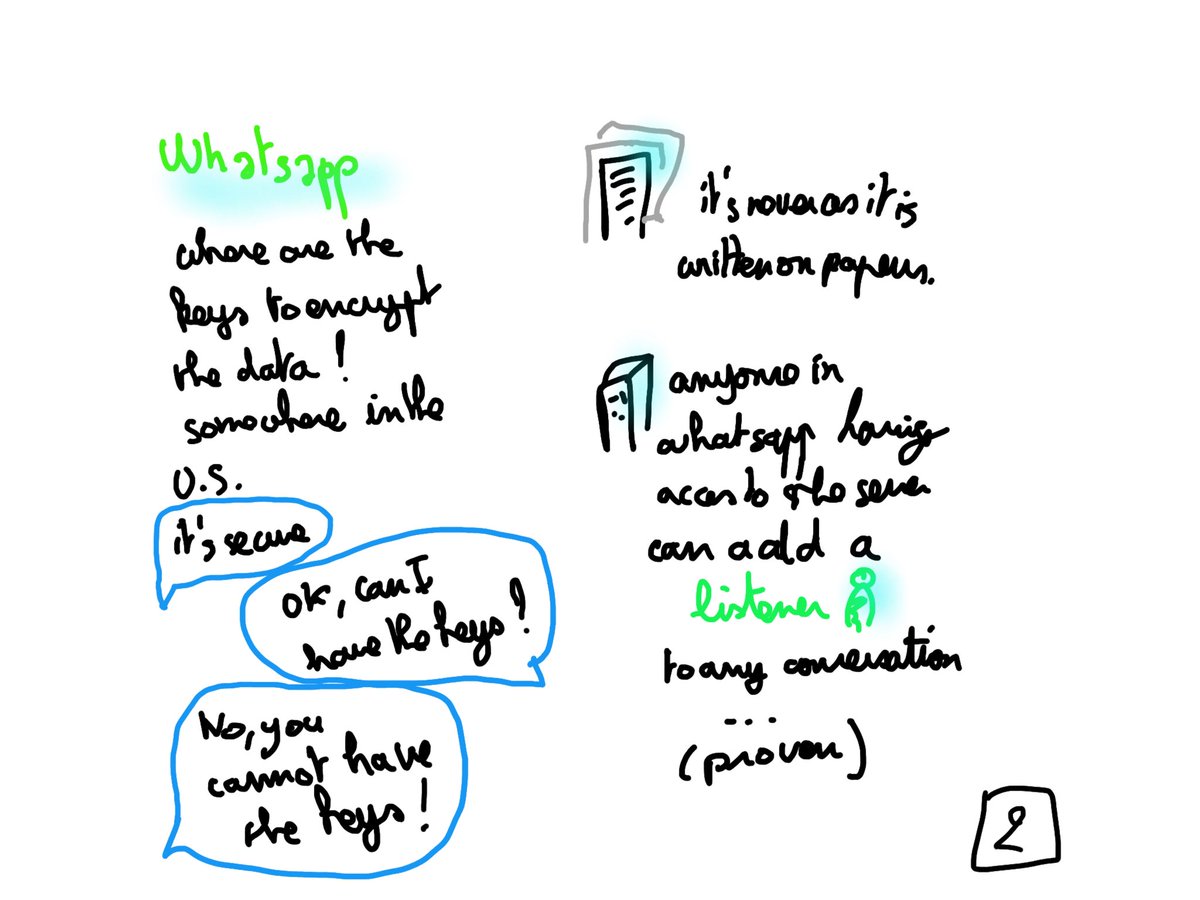 Whatsapp
where are the
keys to encrypt
the data !
somewhere in the
U.S.
it's secure
OK, can I
have the keys !
No, you
cannot have
the keys !
it's never as it is
written on papers.
anyone in
whatsapp having
acces to the server
can add a
listener
to any conversation
...
(proven)
2